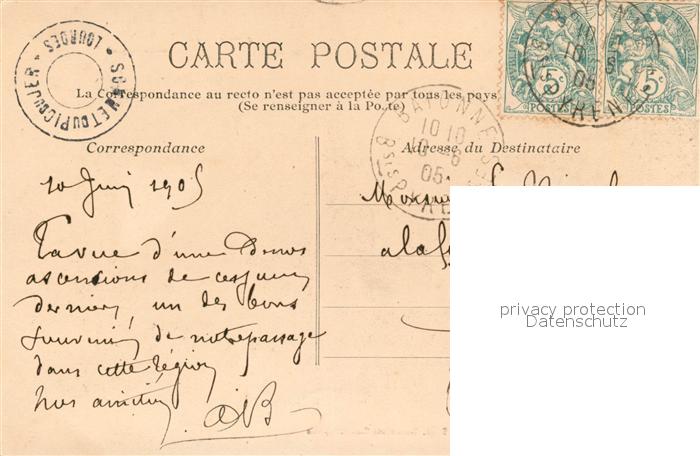 CARTE POSTALE
La Correspondance au recto n'est pas acceptée par tous les pays
(Se renseigner à la Poste)
SOMMET DU PIC DU JER
LOURDES
Correspondance
Adresse du Destinataire
BAYONNE
10 10
10 -6
05
Bses PYRENEES
5c
POSTES
5c
POSTES
10 Juin 1905
La vue d'une de nos
ascensions de ces jours
derniers, un des bons
souvenirs de notre passage
dans cette région
Nos amitiés
AB
Monsieur
privacy protection
Datenschutz